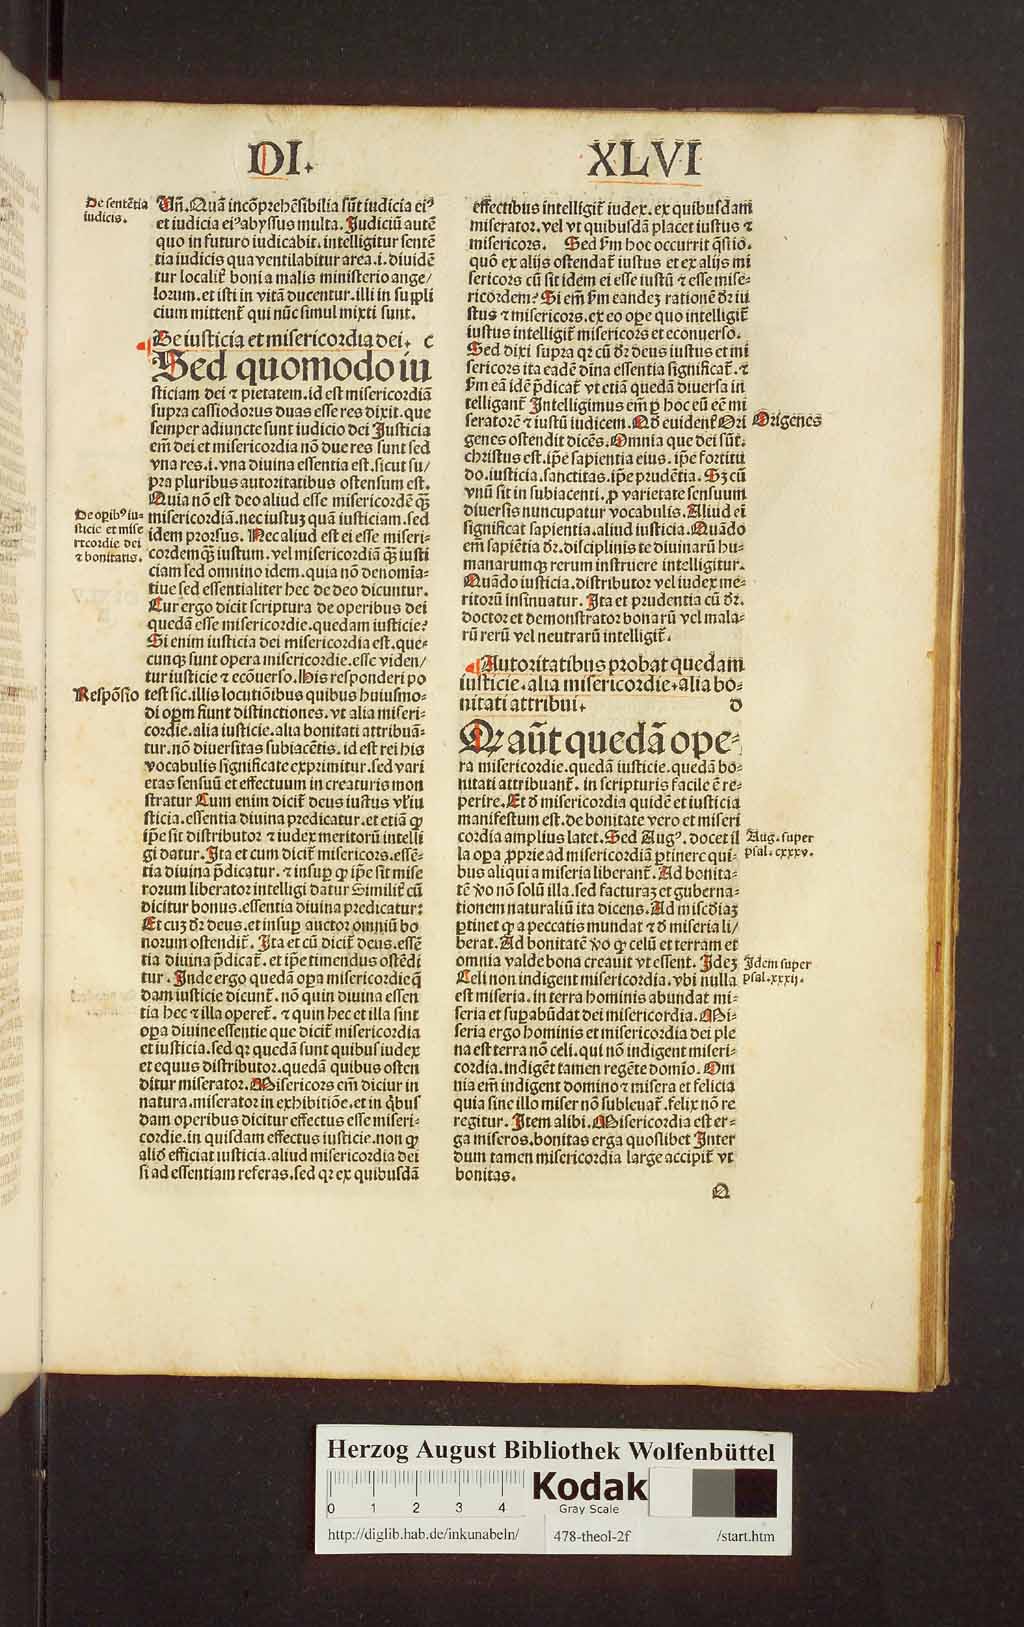 DI. XLVI
De sentētia
iudicis.
Uñ. Quā incōprehēsibilia sūt iudicia eiꝰ
et iudicia eiꝰ abyssus multa. Judiciū autē
quo in futuro iudicabit. intelligitur sentē
tia iudicis qua ventilabitur area .i. diuidē
tur localiṫ boni a malis ministerio ange/
lorum. et isti in vitā ducentur. illi in suppli
cium mittenṫ qui nūc simul mixti sunt.
De iusticia et misericordia dei. c
Sed quomodo iu
sticiam dei ⁊ pietatem. id est misericordiā
supra cassiodorus duas esse res dixit. que
semper adiuncte sunt iudicio dei Justicia
em̄ dei et misericordia nō due res sunt sed
vna res .i. vna diuina essentia est. sicut su/
pra pluribus autoritatibus ostensum est.
Quia nō est deo aliud esse misericordē qꝫ̄
De oꝑibꝰ iu-
sticie et mise
ricordie dei
⁊ bonitatis.
misericordiā. nec iustuꝫ quā iusticiam. sed
idem prorsus. Nec aliud est ei esse miseri-
cordem qꝫ̄ iustum. vel misericordiā qꝫ̄ iusti
ciam sed omnino idem. quia nō denomīa-
tiue sed essentialiter hec de deo dicuntur.
Cur ergo dicit scriptura de operibus dei
quedā esse misericordie. quedam iusticie?
Si enim iusticia dei misericordia est. que-
cunqꝫ sunt opera misericordie. esse viden/
tur iusticie ⁊ ecōuerso. His responderi po
Respōsio
test sic. illis locutiōibus quibus huiusmo-
di oꝑm fiunt distinctiones. vt alia miseri-
cordie. alia iusticie. alia bonitati attribuā-
tur. nō diuersitas subiacētis. id est rei his
vocabulis significate exprimitur. sed vari
etas sensuū et effectuum in creaturis mon
stratur Cum enim diciṫ deus iustus vl̓ iu
sticia. essentia diuina predicatur. et etiā ꝙ
ip̄e sit distributor ⁊ iudex meritorū intelli
gi datur. Ita et cum diciṫ misericors. essē-
tia diuina p̄dicatur. ⁊ insuꝑ ꝙ ip̄e sit mise
rorum liberator intelligi datur Similiṫ cū
dicitur bonus. essentia diuina predicatur:
Et cuꝫ dr̄ deus. et insuꝑ auctor omniū bo
norum ostendiṫ. Ita et cū diciṫ deus. essē
tia diuina p̄dicaṫ. et ip̄e timendus ostēdi
tur. Inde ergo quedā oꝑa misericordie q̄
dam iusticie dicunṫ. nō quin diuina essen
tia hec ⁊ illa opereṫ. ⁊ quin hec et illa sint
oꝑa diuine essentie que diciṫ misericordia
et iusticia. sed qꝛ quedā sunt quibus iudex
et equus distributor. quedā quibus osten
ditur miserator. Misericors em̄ diciur in
natura. miserator in exhibitiōe. et in q̇bus
dam operibus dicitur effectus esse miseri-
cordie. in quisdam effectus iusticie. non ꝙ
aliđ efficiat iusticia. aliud misericordia dei
si ad essentiam referas. sed qꝛ ex quibusdā
effectibus intelligiṫ iudex. ex quibusdam
miserator. vel vt quibusdā placet iustus ⁊
misericors. Sed ẜm hoc occurrit q̄stio.
quō ex alijs ostendaṫ iustus et ex alijs mi
sericors cū sit idem ei esse iustū ⁊ esse mise-
ricordem? Si em̄ ẜm eandeꝫ rationē dr̄ iu
stus ⁊ misericors. ex eo oꝑe quo intelligiṫ
iustus intelligiṫ misericors et econuerso.
Sed dixi supra qꝛ cū dr̄ deus iustus et mi
sericors ita eadē dīna essentia significaṫ. ⁊
ẜm eā idē p̄dicaṫ vt etiā quedā diuersa in
telliganṫ Intelligimus em̄ ꝑ hoc eū eē mi
seratorē ⁊ iustū iudicem. Qđ euidenṫ Ori
Origenes
genes ostendit dicēs. Omnia que dei sūt.
christus est. ip̄e sapientia eius. ip̄e fortitu
do. iusticia. sanctitas. ip̄e prudētia. Sꝫ cū
vnū sit in subiacenti. ꝓ varietate sensuum
diuersis nuncupatur vocabulis. Aliud eī
significat sapientia. aliud iusticia. Quādo
em̄ sapiētia dr̄. disciplinis te diuinarū hu-
manarumqꝫ rerum instruere intelligitur.
Quādo iusticia. distributor vel iudex me-
ritorū insinuatur. Ita et prudentia cū dr̄.
doctor et demonstrator bonarū vel mala-
rū rerū vel neutrarū intelligiṫ.
Autoritatibus probat quedam
iusticie. alia misericordie. alia bo-
nitati attribui. d
Qꝛ aūt quedā ope-
ra misericordie. quedā iusticie. quedā bo-
nitati attribuanṫ. in scripturis facile ē re-
perire. Et đ misericordia quidē et iusticia
manifestum est. de bonitate vero et miseri
cordia amplius latet. Sed Augꝰ. docet il
Aug. super
psal. cxxxv.
la oꝑa ꝓprie ad misericordiā ꝑtinere qui-
bus aliqui a miseria liberanṫ. Ad bonita-
tē v̊o nō solū illa. sed facturaꝫ et guberna-
tionem naturaliū ita dicens. Ad miscđiaꝫ
ꝑtinet ꝙ a peccatis mundat ⁊ đ miseria li/
berat. Ad bonitatē v̊o ꝙ celū et terram et
omnia valde bona creauit vt essent. Ideꝫ
Idem super
psal. xxxij.
Celi non indigent misericordia. vbi nulla
est miseria. in terra hominis abundat mi-
seria et suꝑabūdat dei misericordia. Mi-
seria ergo hominis et misericordia dei ple
na est terra nō celi. qui nō indigent miseri-
cordia. indigēt tamen regēte domīo. Om
nia em̄ indigent domino ⁊ misera et felicia
quia sine illo miser nō subleuaṫ. felix nō re
regitur. Item alibi. Misericordia est er-
ga miseros. bonitas erga quoslibet Inter
dum tamen misericordia large accipiṫ vt
bonitas.
Q
Herzog August Bibliothek Wolfenbüttel
0 1 2 3 4
Kodak
Gray Scale
http://diglib.hab.de/inkunabeln/ 478-theol-2f /start.htm